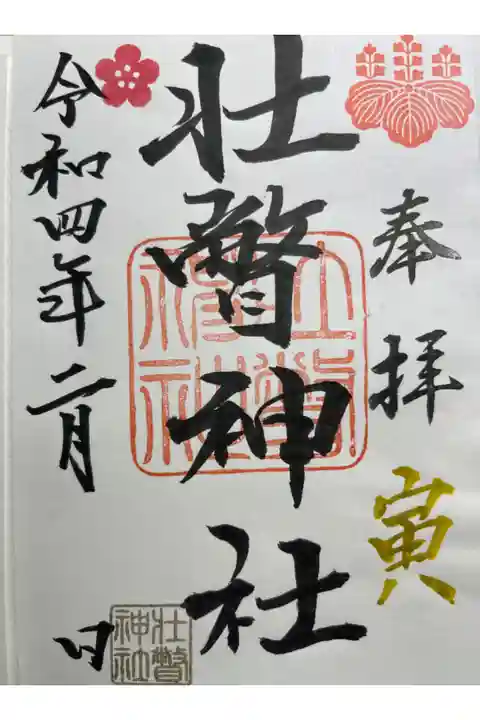 奉拝
寅
壮瞥神社
令和四年二月 日
壮瞥神社